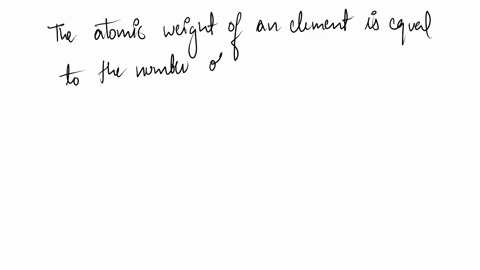 The atomic weight of an element is equal
to the number o